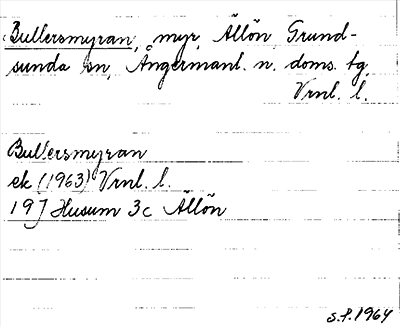 Bullersmyran, myr, Ällön, Grund-
sunda sn, Ångermanl. n. doms. tg,
Vrnl. l.
Bullersmyran
ek (1963) Vrnl. l.
19J Husum 3c Ällön
S.P. 1964